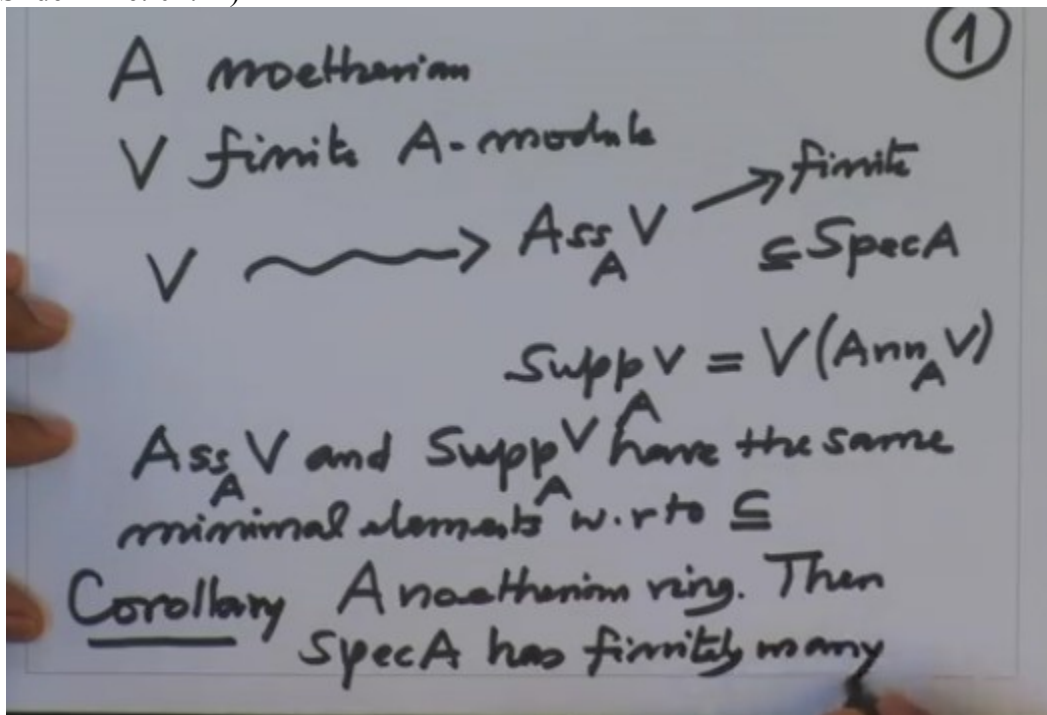 ①
A noetherian
V finite A-module
V ⟿ Ass_A V → finite
⊆ Spec A
Supp_A V = V(Ann_A V)
Ass_A V and Supp_A V have the same
minimal elements w.r to ⊆
Corollary A noetherian ring. Then
Spec A has finitely many